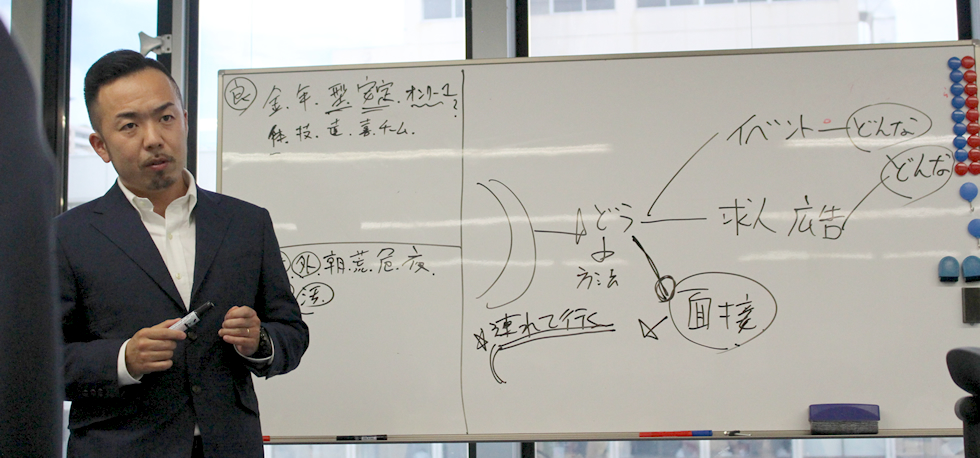 良 金.年.型.安定.オンリー1?
休.技.道.善.チーム.
外 朝.荒.危.夜.
活.
どう
よ
方法
連れて行く
イベント どんな
求人広告 どんな
面接